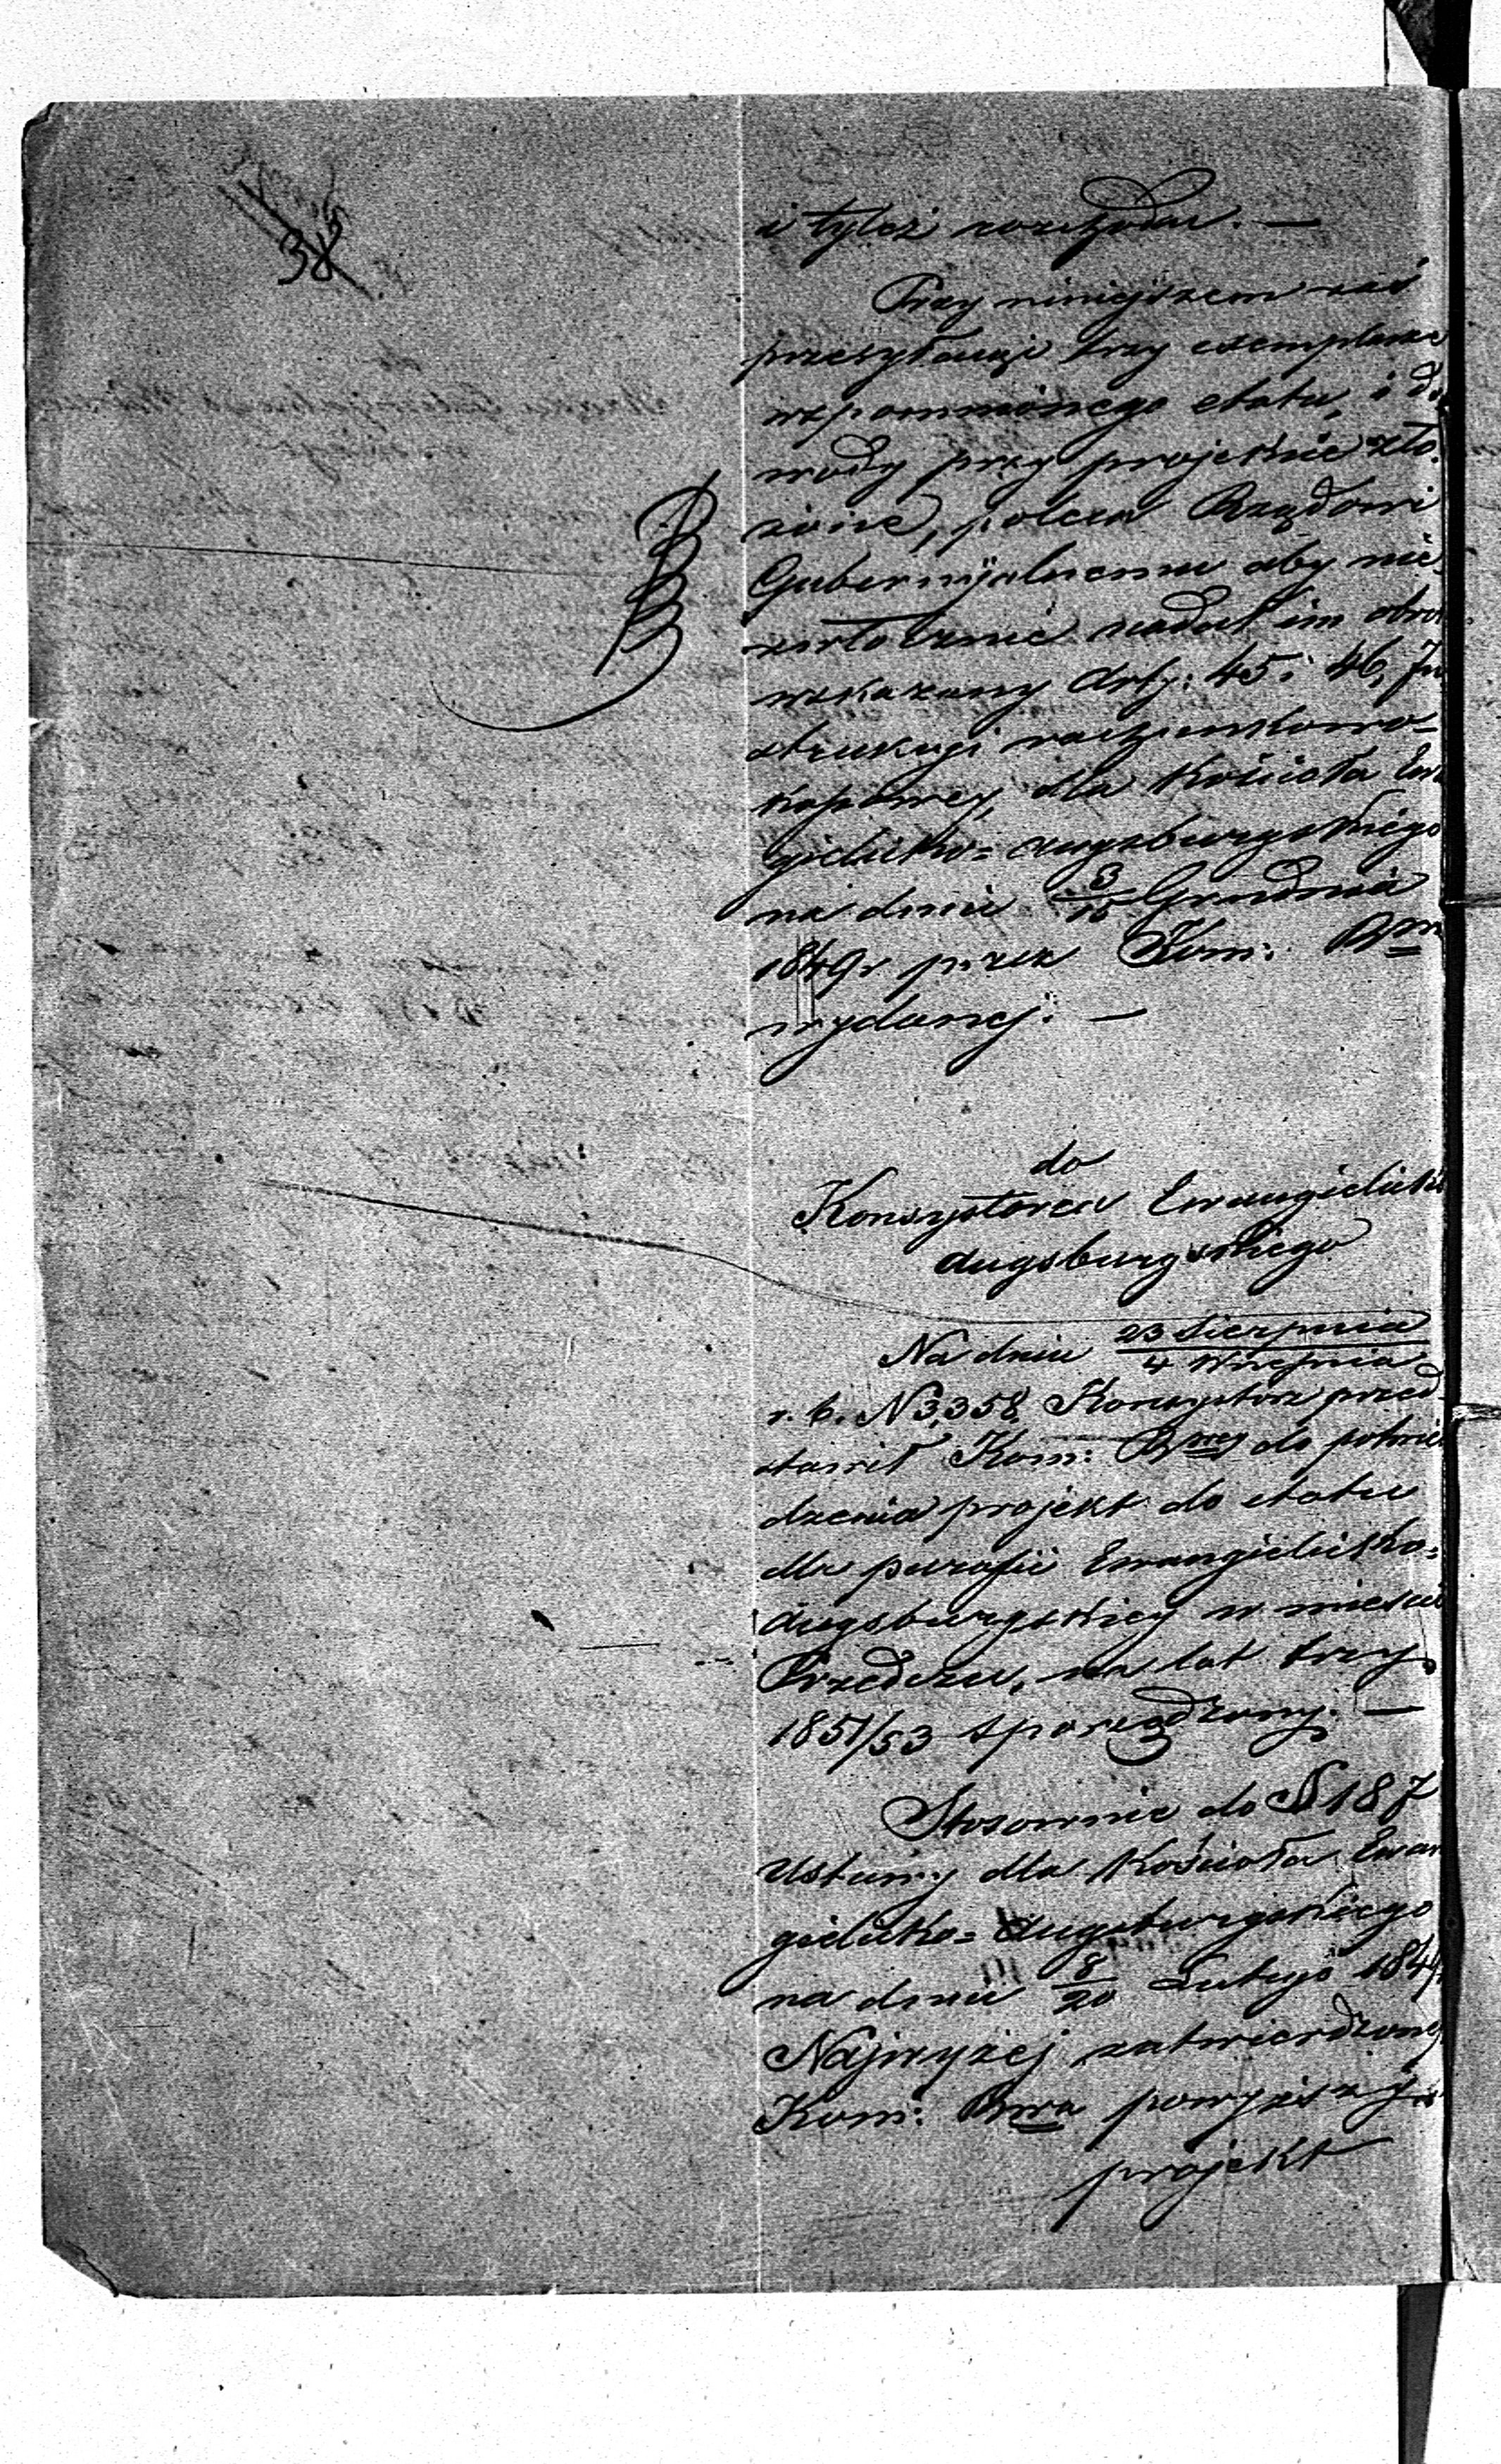 38
i tyleż rozchodu. —
Przy niniejszem zaś
przesyłając trzy exemplarze
wspomnionego etatu, i do
wody przy projekcie zło-
żone, poleca Rządowi
Gubernijalnemu aby nie-
zwłocznie nadał im obrot
wskazany Arty: 45 i 46, In
strukcyi rachunkowo-
kassowey dla Kościoła Ewa
gielicko=augsburgskiego
na dniu 3/15 Grudnia
1849r przez Kom: R
wydanej. —
do
Konsystorza Ewangielicko
Augsburgskiego
Na dniu 23 Sierpnia / 4 Września
r. b. N 3,358. Konsystorz przed-
stawił Kom: Rwey do potwier
dzenia projekt do etatu
dla parafii Ewangielicko=
Augsburgskiey w mieście
Przedczu, na lat trzy
1851/53 sporządzony. —
Stosownie do § 187
Ustawy dla Kościoła Ewan
gielicko=Augsburgskiego
na dniu 8/20 Lutego 1849
Najwyżej zatwierdzoney
Kom: Rwa powyższy
projekt